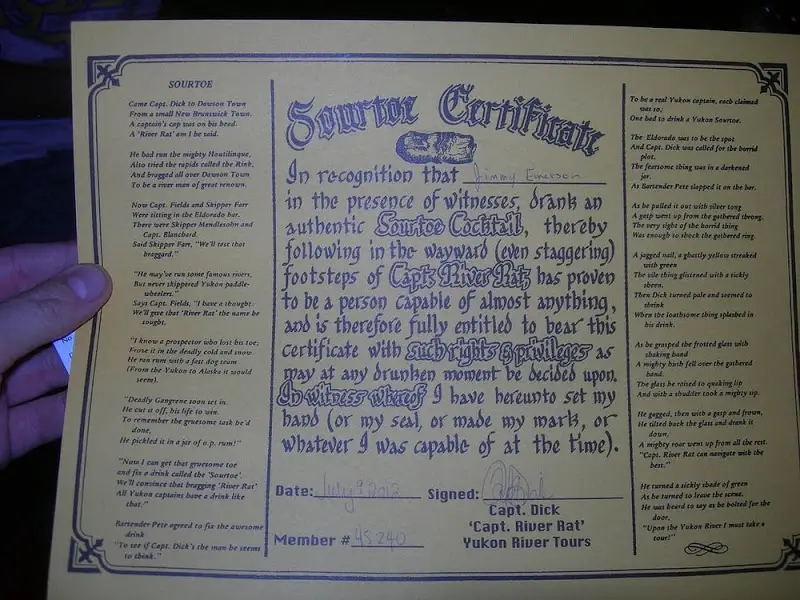 SOURTOE
Came Capt. Dick to Dawson Town
From a small New Brunswick Town.
A captain's cap was on his head.
A 'River Rat' am I he said.
He had run the mighty Houtilinque,
Also tried the rapids called the Rink,
And bragged all over Dawson Town
To be a river man of great renown.
Now Capt. Fields and Skipper Farr
Were sitting in the Eldorado bar.
There were Skipper Mendlesohn and
Capt. Blanchard.
Said Skipper Farr, "We'll test that
braggard."
"He may've run some famous rivers,
But never skippered Yukon paddle-
wheelers."
Says Capt. Fields, "I have a thought.
We'll give that 'River Rat' the name he
sought.
"I know a prospector who lost his toe;
Froze it in the deadly cold and snow
He ran rum with a fast dog team
(From the Yukon to Alaska it would
seem).
"Deadly Gangrene soon set in.
He cut it off, his life to win.
To remember the gruesome task he'd
done,
He pickled it in a jar of o.p. rum!"
"Now I can get that gruesome toe
and fix a drink called the 'Sourtoe'.
We'll convince that bragging 'River Rat'
All Yukon captains have a drink like
that."
Bartender Pete agreed to fix the awesome
drink
"To see if Capt. Dick's the man he seems
to think."
Sourtoe Certificate
In recognition that Jimmy Emerson
in the presence of witnesses, drank an
authentic Sourtoe Cocktail, thereby
following in the wayward (even staggering)
footsteps of Capt. River Rat, has proven
to be a person capable of almost anything,
and is therefore fully entitled to bear this
certificate with such rights & privileges as
may at any drunken moment be decided upon.
In witness whereof I have hereunto set my
hand (or my seal, or made my mark, or
whatever I was capable of at the time).
Date: July 9 2012 Signed:
Capt. Dick
'Capt. River Rat'
Member # 45240 Yukon River Tours
To be a real Yukon captain, each claimed
was so;
One had to drink a Yukon Sourtoe.
The Eldorado was to be the spot
And Capt. Dick was called for the horrid
plot.
The fearsome thing was in a darkened
jar.
As Bartender Pete slapped it on the bar.
As he pulled it out with silver tong
A gasp went up from the gathered throng.
The very sight of the horrid thing
Was enough to shock the gathered ring.
A jagged nail, a ghastly yellow streaked
with green
The vile thing glistened with a sickly
sheen.
Then Dick turned pale and seemed to
shrink
When the loathsome thing splashed in
his drink.
As he grasped the frosted glass with
shaking hand
A mighty hush fell over the gathered
band.
The glass he raised to quaking lip
And with a shudder took a mighty sip.
He gagged, then with a gasp and frown,
He tilted back the glass and drank it
down,
A mighty roar went up from all the rest.
"Capt. River Rat can navigate with the
best."
He turned a sickly shade of green
As he turned to leave the scene.
He was heard to say as he bolted for the
door,
"Upon the Yukon River I must take a
tour!"